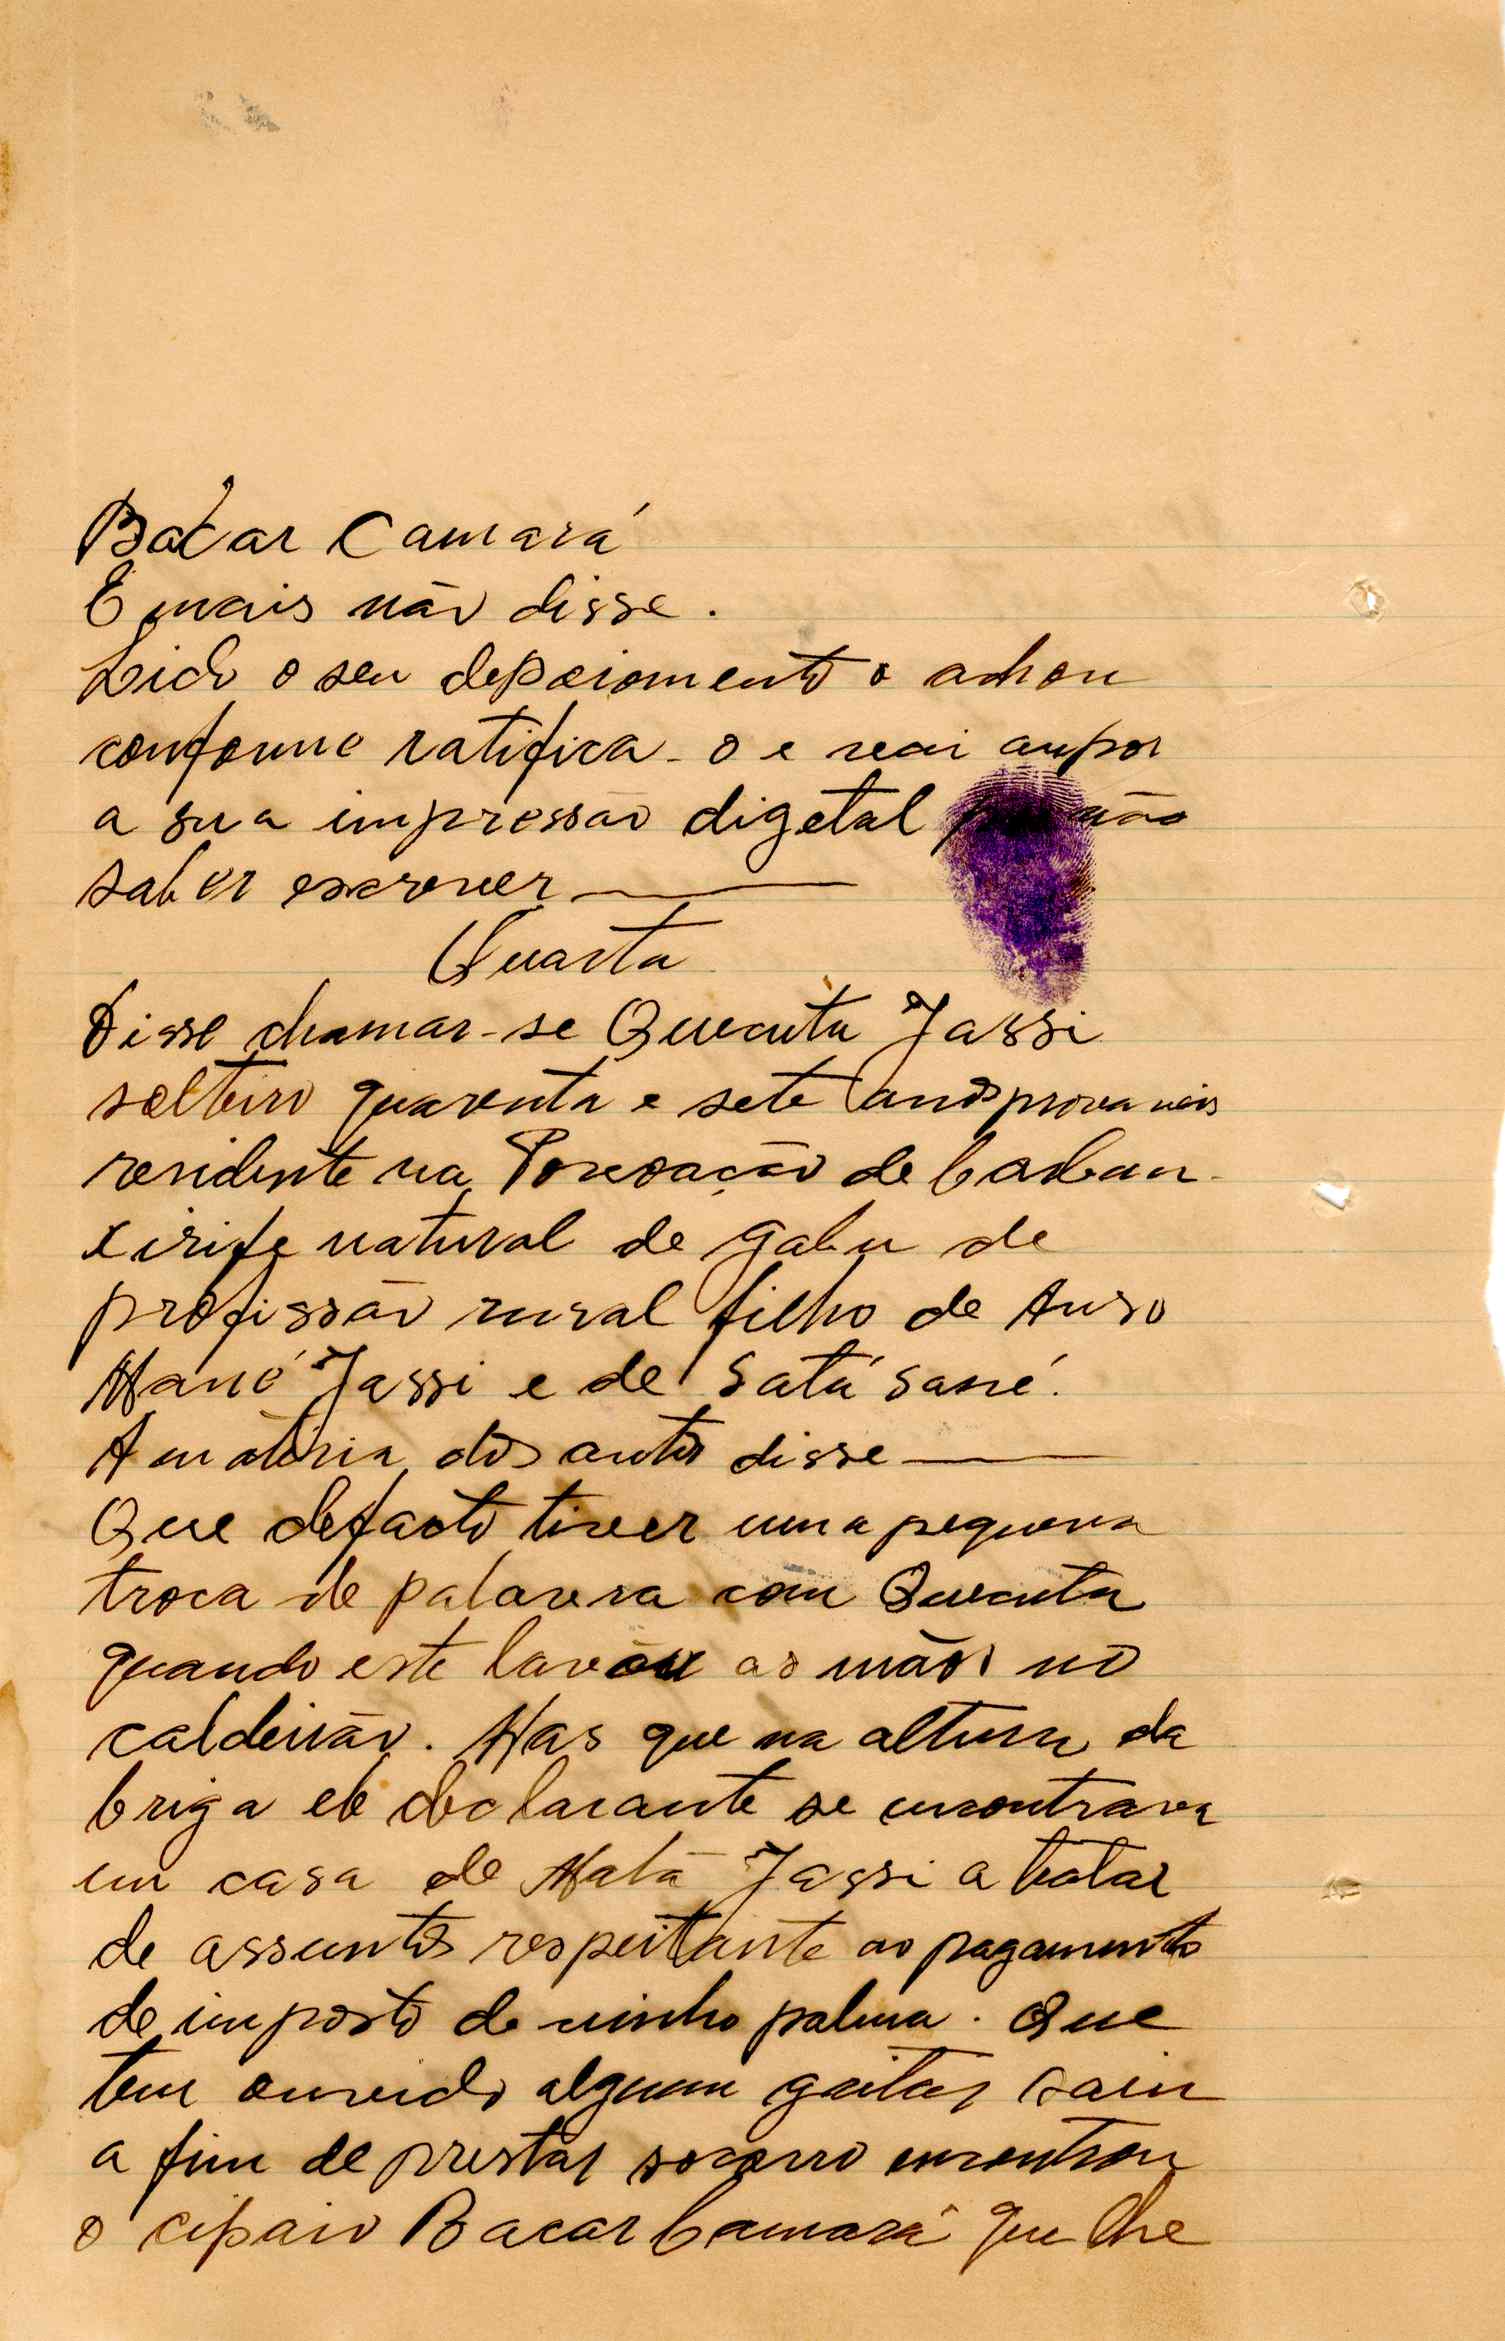 Bacar Camará
E mais não disse.
Lido o seu depoiomento o achou
conforme ratifica-o e vai aupor
a sua impressão digetal por não
saber escrever
Quarta
Disse chamar-se Quecuta Jassi
solteiro quarenta e sete anos provaveis
residente na Povoação de Cadan-
xirife natural de Gabu de
profissão rural filho de
Mané Jassi e de Satá Sané.
A matéria dos autos disse
Que defacto tiver uma pequena
troca de palavra com Quecuta
quando este lavou as mãos no
caldeirão. Mas que na altura da
briga ele declarante se encontrava
em casa de Malã Jassi a tratar
de assuntos respeitante ao pagamento
de imposto de vinho palma. Que
tem ouvido algum gritar saiu
a fim de prestar socorro encontrou
o cipaio Bacar Camará que lhe